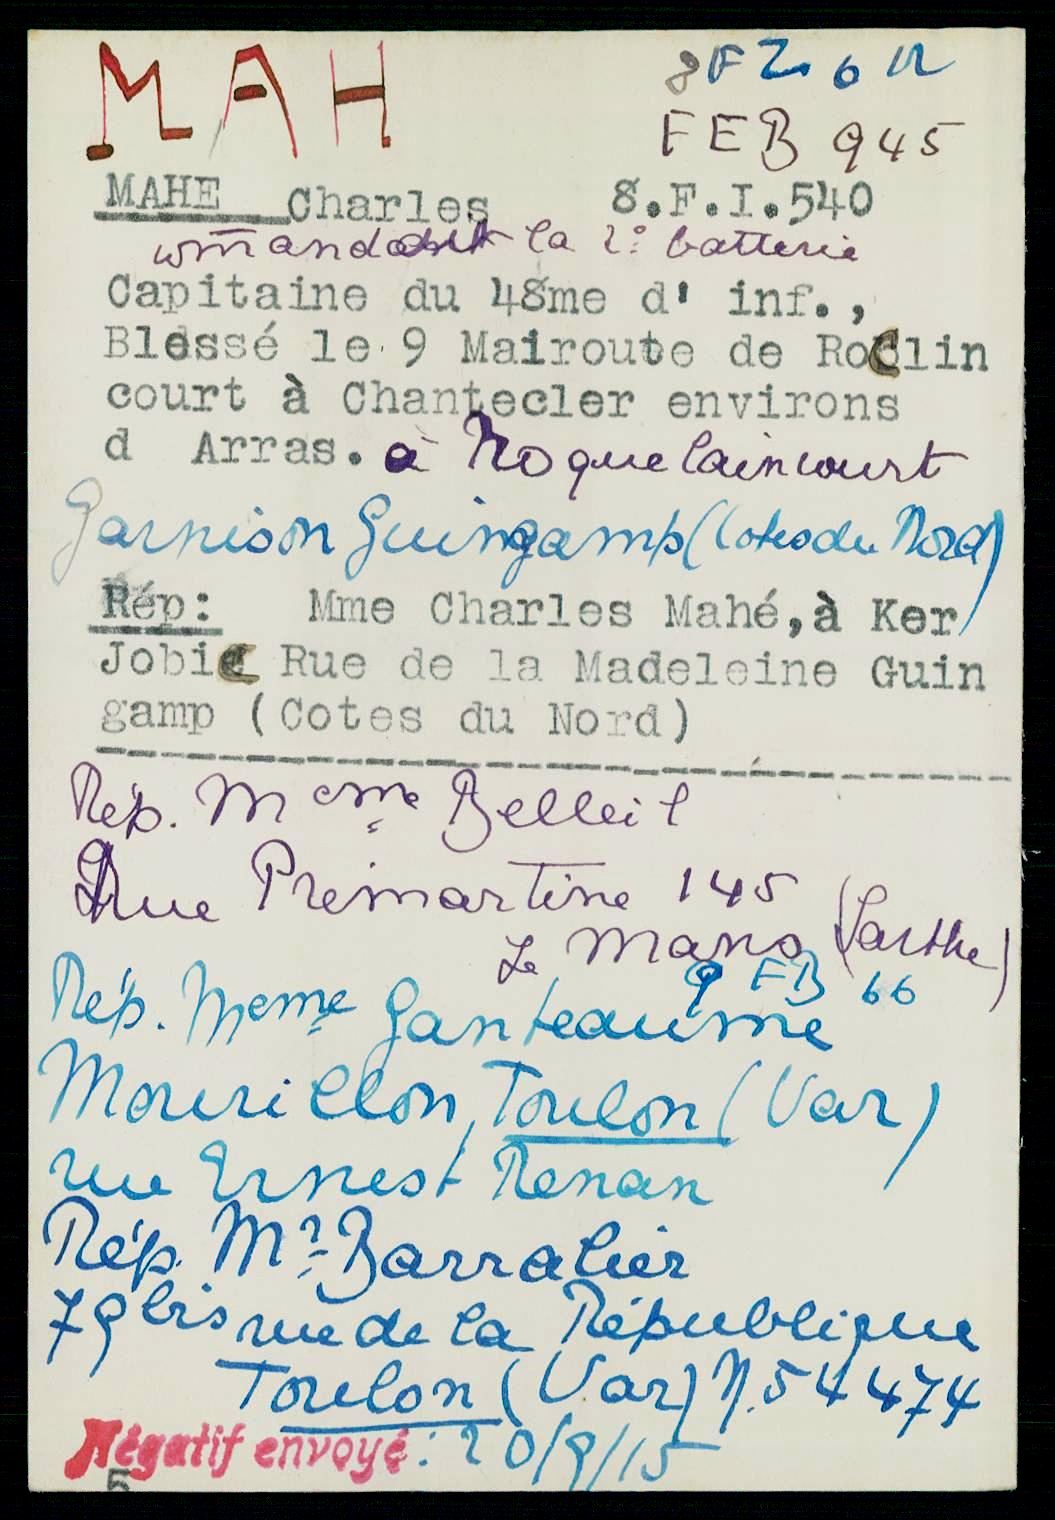 MAH
8 F Z 6 12
FEB 945
MAHE Charles 8.F.I.540
commandait la 2e batterie
Capitaine du 48me d' inf.,
Blessé le 9 Mairoute de Roclin
court à Chantecler environs
d Arras. à Roquelaincourt
Garnison Guingamp (Cotes du Nord)
Rép: Mme Charles Mahé, à Ker
Jobic Rue de la Madeleine Guin
gamp (Cotes du Nord)
Rép. Meme Belleil
Rue Prémartine 145
Le Mans (Sarthe)
9 FB 66
Rép. Meme Ganteaume
Mourillon, Toulon (Var)
rue Ernest Renan
Rép. Mr Barralier
79 bis rue de la République
Toulon (Var) N. 54474
Négatif envoyé: 20/9/15
5